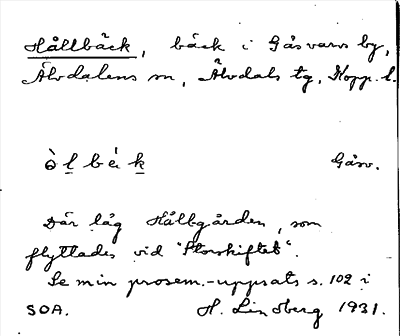 Hållbäck, bäck i Gåsvarvs by,
Älvdalens sn, Älvdals tg, Kopp. l.
ò l b é k Gåsv.
Där låg Hållbgården, som
flyttades vid "Storskiftet".
Se min prosem.-uppsats s. 102 i
SOA. H. Lindberg 1931.